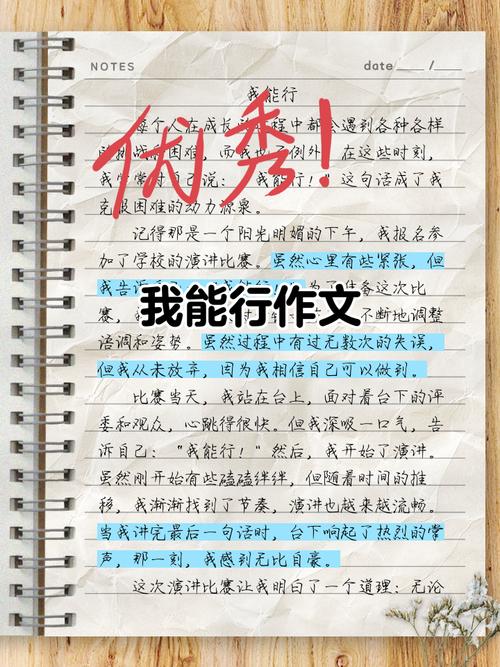 NOTES
date ___ /___
我能行
优秀!
每个人在成长过程中都会遇到各种各样
困难，而我也例外。在这些时刻，
我常常对自己说："我能行！"这句话成了我
克服困难的动力源泉。
记得那是一个阳光明媚的下午，我报名参
加了学校的演讲比赛。虽然心里有些紧张，但
我告诉
为了准备这次比
我能行作文
赛，
不断地调整
语调和姿势。虽然过程中有过无数次的失误，
但我从未放弃，因为我相信自己可以做到。
比赛当天，我站在台上，面对着台下的评
委和观众，心跳得很快。但我深吸一口气，告
诉自己："我能行！"然后，我开始了演讲。
虽然刚开始有些磕磕绊绊，但随着时间的推
移，我渐渐找到了节奏，演讲也越来越流畅。
当我讲完最后一句话时，台下响起了热烈的掌
声，那一刻，我感到无比自豪。
这次演讲比赛让我明白了一个道理：无论